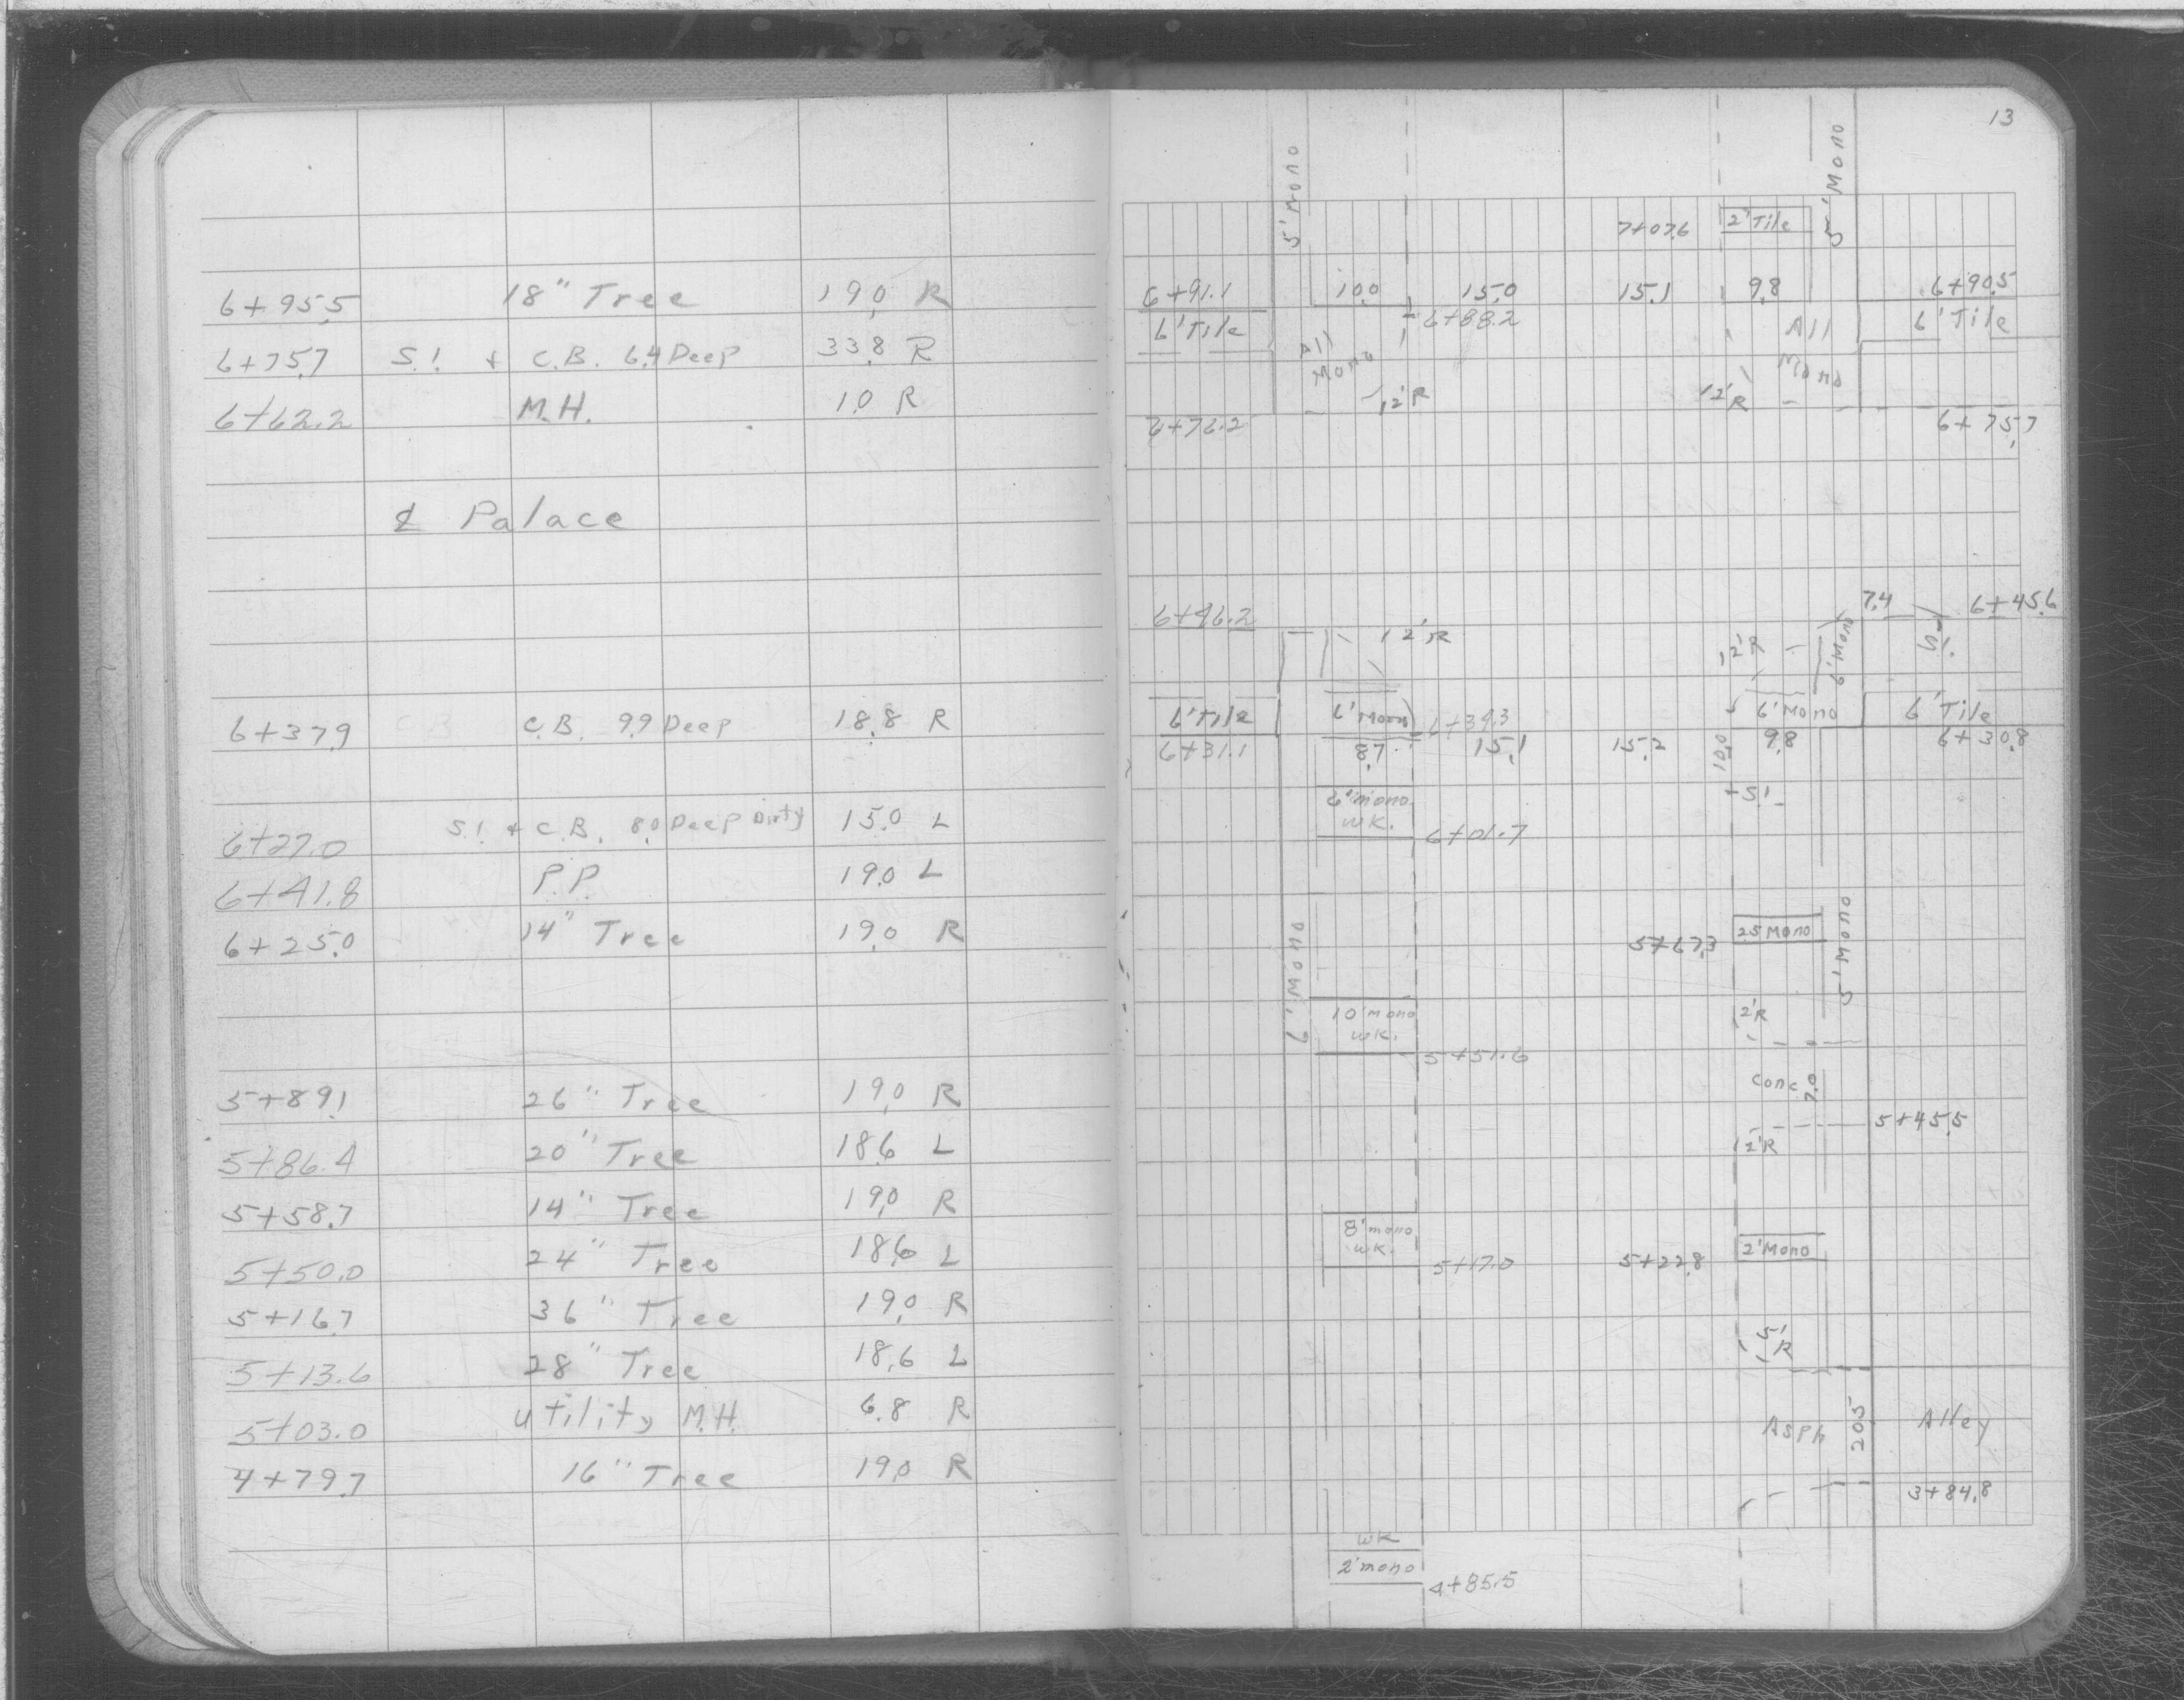 6+95.5 18" Tree 19.0 R
6+75.7 S.I. + C.B. 6.4 Deep 33.8 R
6+62.2 M.H. 1.0 R
℄ Palace
6+37.9 C.B. C.B. 9.9 Deep 18.8 R
6+27.0 S.I. + C.B. 8.0 Deep Dirty 15.0 L
6+41.8 P.P. 19.0 L
6+25.0 14" Tree 19.0 R
5+89.1 26" Tree 19.0 R
5+86.4 20" Tree 18.6 L
5+58.7 14" Tree 19.0 R
5+50.0 24" Tree 18.6 L
5+16.7 36" Tree 19.0 R
5+13.6 28" Tree 18.6 L
5+03.0 Utility M.H. 6.8 R
4+79.7 16" Tree 19.0 R
13
5' Mono
5' Mono
7+07.6 2' Tile
6+91.1 10.0 15.0 15.1 9.8 6+90.5
6' Tile 6+88.2 All 6' Tile
All Mono Mono
12'R 12'R
6+76.2 6+75.7
6+46.2 7.4 6+45.6
12'R 12'R 6' Mono S.I.
6' Tile 6' Mono 6+39.3 6' Mono 6' Tile
6+31.1 8.7 15.1 15.2 10.0 9.8 6+30.8
6' mono S.I.
wk. 6+01.7
7' Mono
5' Mono
5+67.3 2.5 Mono
10' mono 2'R
wk. 5+51.6
Conc. 7.0
5+45.5
12'R
8' mono
wk. 5+17.0 5+22.8 2' Mono
5'R
Asph 20.5 Alley
3+84.8
wk
2' mono 4+85.5